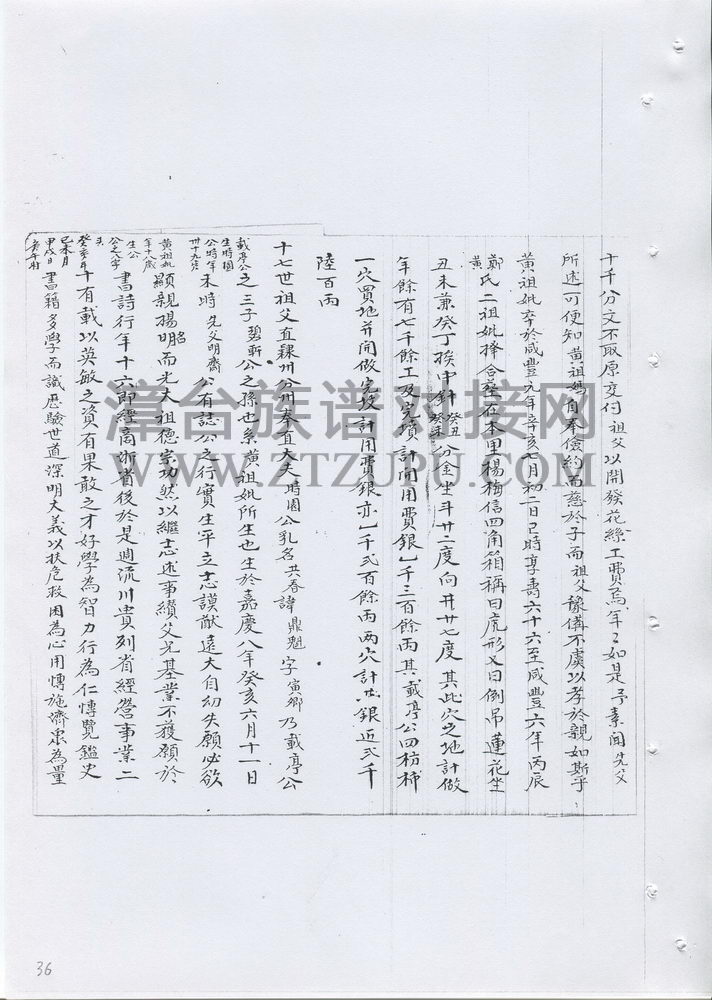 十千分文不取原交付祖父以開發花綠工費為年〻如是予素聞先父
所述可便知黃祖妣自奉儉約而慈於子而祖父豫備不虞以孝於親如斯乎
黃祖妣卒於咸豐元年辛亥七月初二日巳時享壽六十六至咸豐六年丙辰
鄭氏黃二祖妣擇合塟在本里楊梅信四角箱稱曰虎形又曰倒吊蓮花坐
丑未兼癸丁挨中針癸丑癸未分金坐斗廿二度向井廿七度其此穴之地計做
年餘有七千餘工及完墳計開用費銀乙千三百餘両其載亭公四枋柿
一穴買地并開做完竣計用費銀亦乙千弍百餘両両穴計共銀近弍千
陸百両
十七世祖父直隸州分州奉直大夫時園公乳名共春諱鼎魁字寅鄉乃載亭公
載亭公生時園公時年卅十九歲
之三子碧軒公之孫也系黃祖妣所生也生於嘉慶八年癸亥六月十一日
未時先父明齋公有誌公之行實生平立志謨猷遠大自幼失願必欲
黃祖妣年十八歲生公
顯親揚明名而光大祖德宗功然以繼志述事纘父兄基業不獲願於
公之八字
書詩行年十六即經商浙省後於是週流川貴列省經營事業二
癸亥年己未月甲戌日
十有載以英敏之資有果敢之才好學為智力行為仁愽覽鑑史
書籍多學而識歷驗世道深明大義以扶危救困為心用愽施濟眾為量
36
漳台族谱对接网
WWW.ZTZUPU.COM